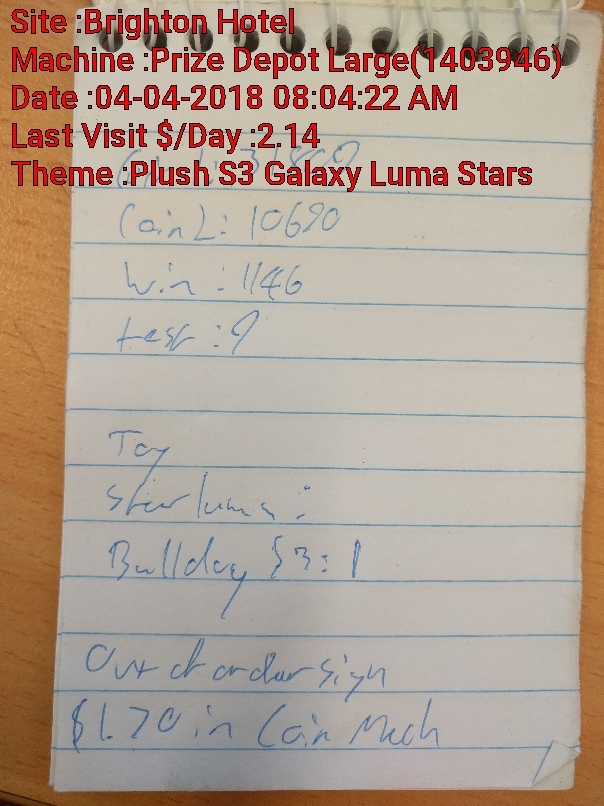 Site :Brighton Hotel
Machine :Prize Depot Large(1403946)
Date :04-04-2018 08:04:22 AM
Last Visit $/Day :2.14
Theme :Plush S3 Galaxy Luma Stars
Coin2: 10690
Win: 1146
test: 9
Toy
Star luma:
Bulldog S3: 1
Out of order sign
$1.70 in Coin Mech